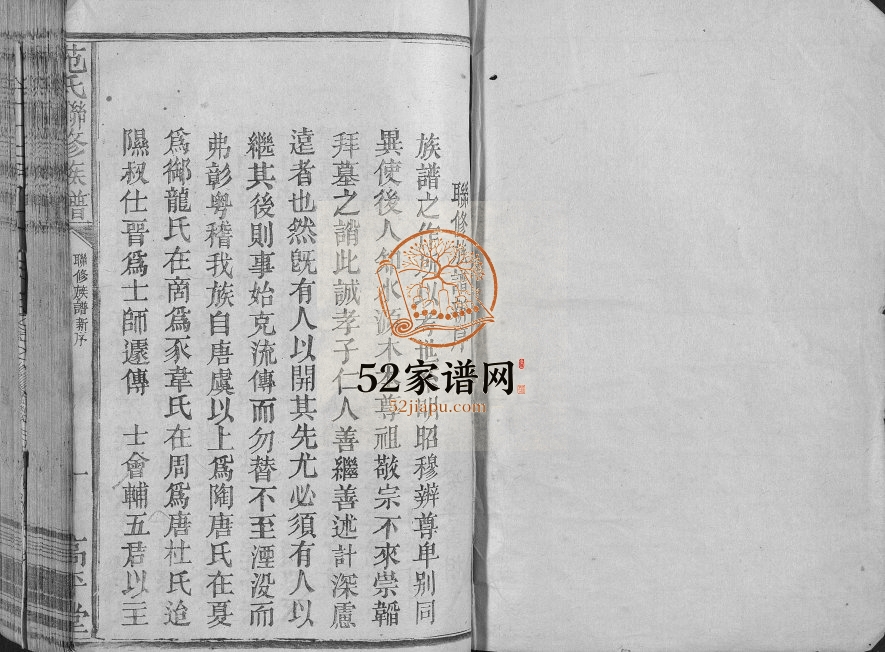 聯修族譜新序
族譜之作所以考世明昭穆辨尊卑別同
異使後人知水源木本尊祖敬宗不來崇韜
拜墓之誚此誠孝子仁人善繼善述計深慮
遠者也然既有人以開其先尤必須有人以
繼其後則事始克流傳而勿替不至湮沒而
弗彰粵稽我族自唐虞以上爲陶唐氏在夏
爲御龍氏在商爲豕韋氏在周爲唐杜氏迨
隰叔仕晉爲士師遞傳 士會輔五君以主
范氏聯修族譜
聯修族譜新序
一
高平堂
52家谱网
52jiapu.com